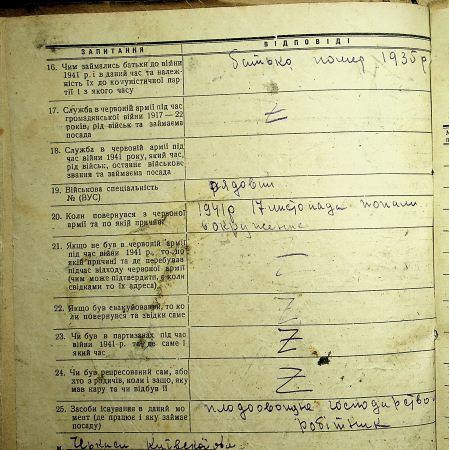 ЗАПИТАННЯ
ВІДПОВІДІ
16. Чим займались батьки до війни
1941 р. і в даний час та належ-
ність їх до комуністичної пар-
тії і з якого часу
батько помер 1935 р
17. Служба в червоній армії під час
громадянської війни 1917—22
років, рід військ та займаєма
посада
Z
18. Служба в червоній армії під
час війни 1941 року, який час,
рід військ, останнє військове
звання та займаєма посада
19. Військова спеціальність
№ (ВУС)
рядовий
20. Коли повернувся з червоної
армії та по якій причині
1941р 17 листопада попали
в окружение
21. Якщо не був в червоній армії
під час війни 1941 р., то по
якій причині та де перебував
підчас відходу червоної армії
(чим може підтвердити, а коли
свідками то їх адреса)
22. Якщо був евакуйований, то ко-
ли повернувся та звідки саме
Z
23. Чи був в партизанах під час
війни 1941 р. та де саме і
який час
Z
24. Чи був репресований сам, або
хто з родичів, коли і защо, яку
мав кару та чи відбув її
Z
25. Засоби існування в даний мо-
мент (де працює і яку займає
посаду)
господарство
робітник